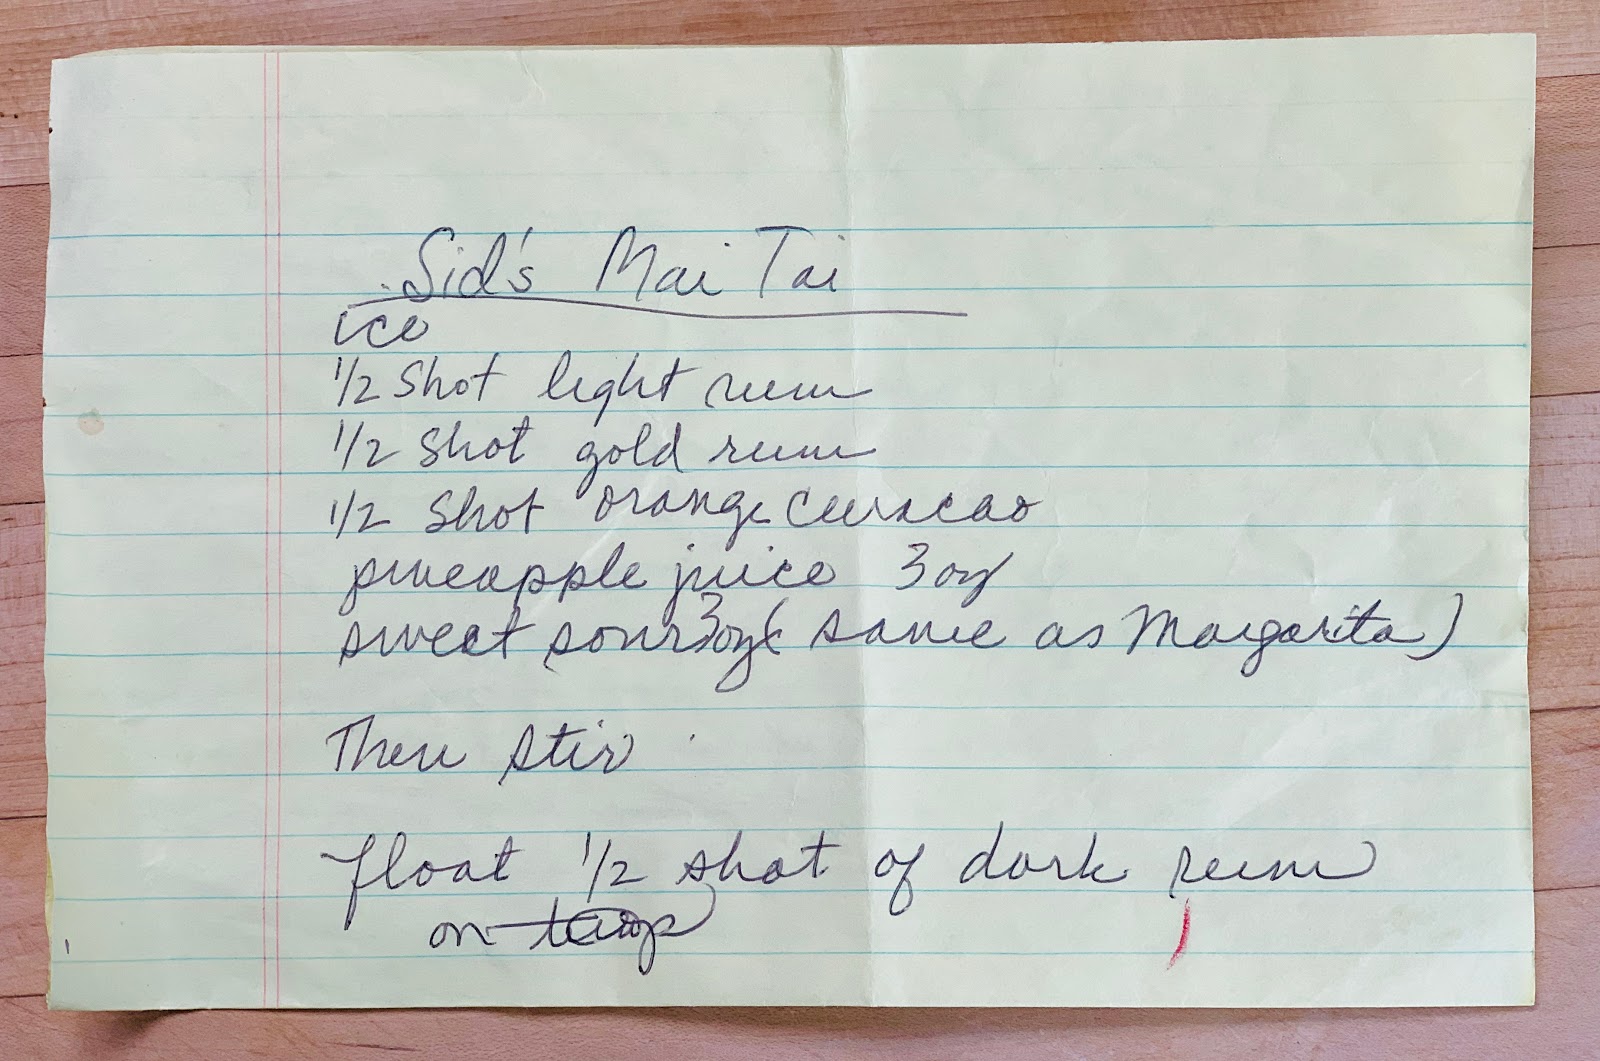 Sid's Mai Tai
ice
1/2 shot light rum
1/2 shot gold rum
1/2 shot orange curacao
pineapple juice 3 oz
sweet sour 3 oz (same as Margarita)
Then stir
float 1/2 shot of dark rum
on top